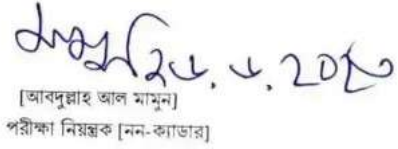 ২৬.৬.২০২৩
[আবদুল্লাহ আল মামুন]
পরীক্ষা নিয়ন্ত্রক [নন-ক্যাডার]